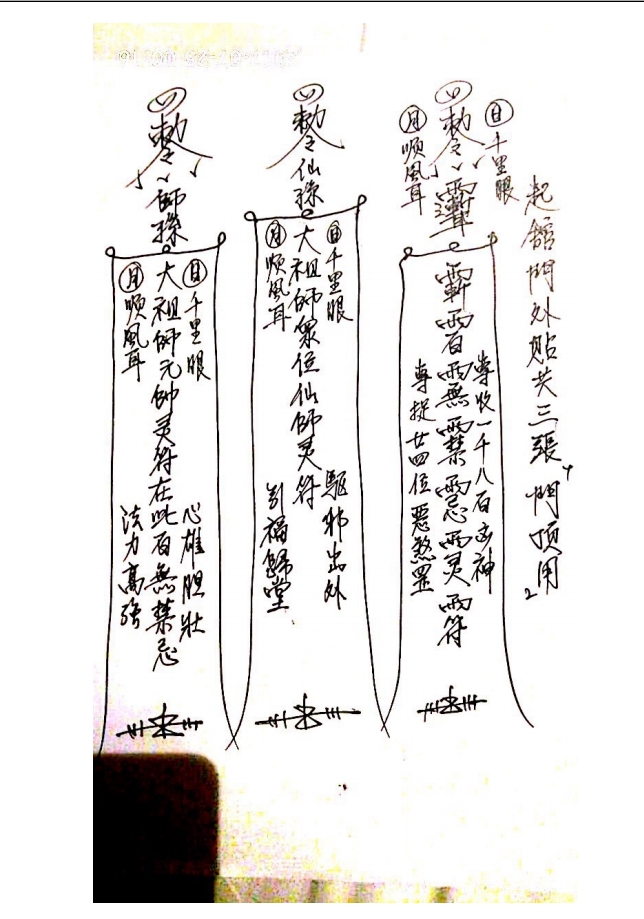 起舘門外貼共三張 門頂用
日 千里眼
敕令
月 順風耳
專收一千八百凶神
專捉廿四位惡煞罡
敕令仙孫
日 千里眼
大祖師眾位仙師灵符
月 順風耳
驅邪出外
引福歸堂
敕令師孫
日 千里眼
大祖師元帥灵符在此百無禁忌
月 順風耳
心雄胆壯
法力高強